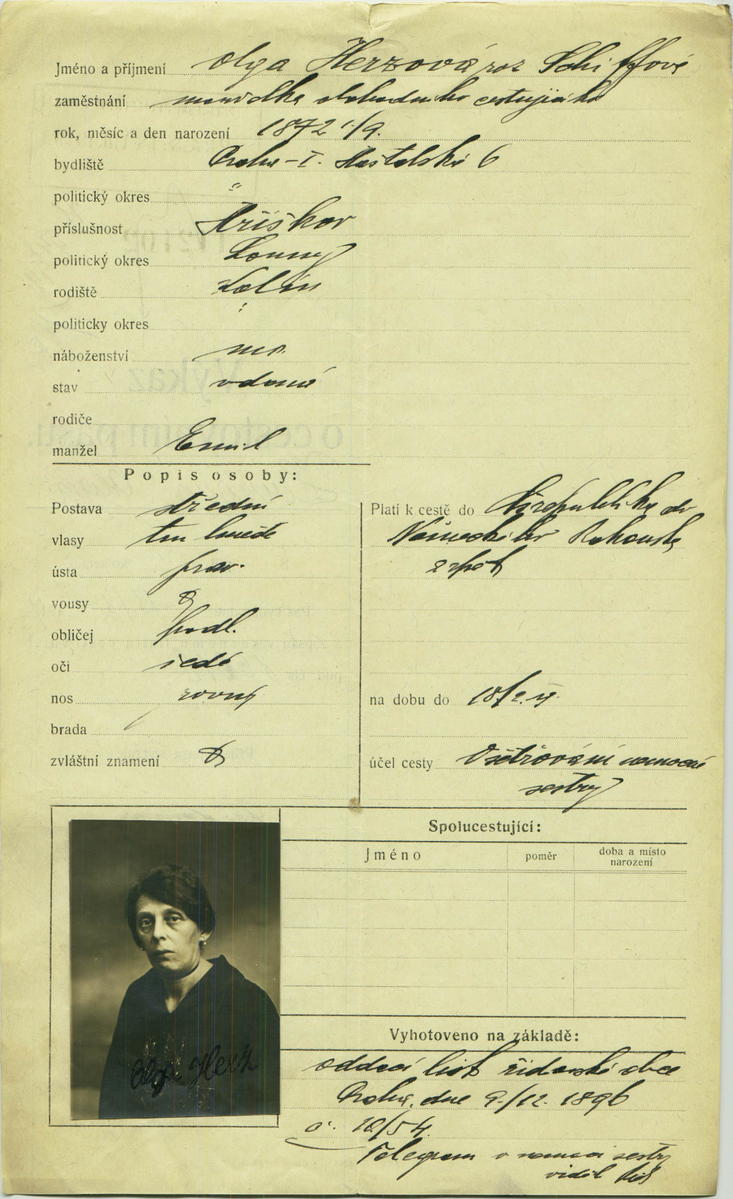 Jméno a příjmení Olga Herzová roz Schiffová
zaměstnání manželka obchodního cestujícího
rok, měsíc a den narození 1872 1/9.
bydliště Praha - I. Haštalská 6
politický okres "
příslušnost Hříškov
politický okres Louny
rodiště Kolín
politicky okres "
náboženství
stav vdaná
rodiče
manžel Emil
Popis osoby:
Postava střední
vlasy tm hnědé
ústa prav.
vousy
obličej podl.
oči šedé
nos rovný
brada
zvláštní znamení
Platí k cestě do do
Německého Rakouska
zpět
na dobu do 18/2.
účel cesty Ošetřování nemocné
sestry
Spolucestující:
Jméno poměr doba a místo
narození
Vyhotoveno na základě:
oddací list židovské obce
Praha, dne 9./12. 1896
č. 12/54.
Telegram o nemoci sestry
viděl
Olga Herz